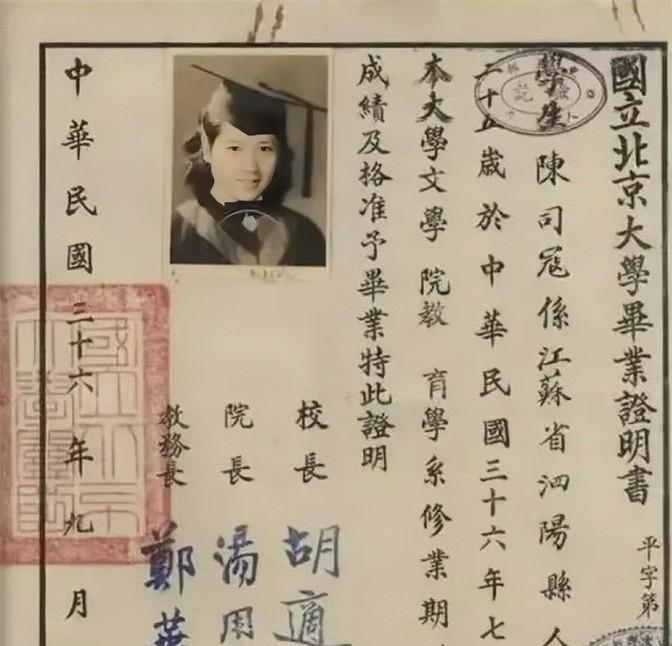 國立北京大學畢業證明書
平字第
學生陳司寇係江蘇省泗陽縣人
二十五歲於中華民國三十六年七
本大學文學院教育學系修業期
成績及格准予畢業特此證明
校長 胡適
院長 湯用
教務長 鄭華
中華民國三十六年九月